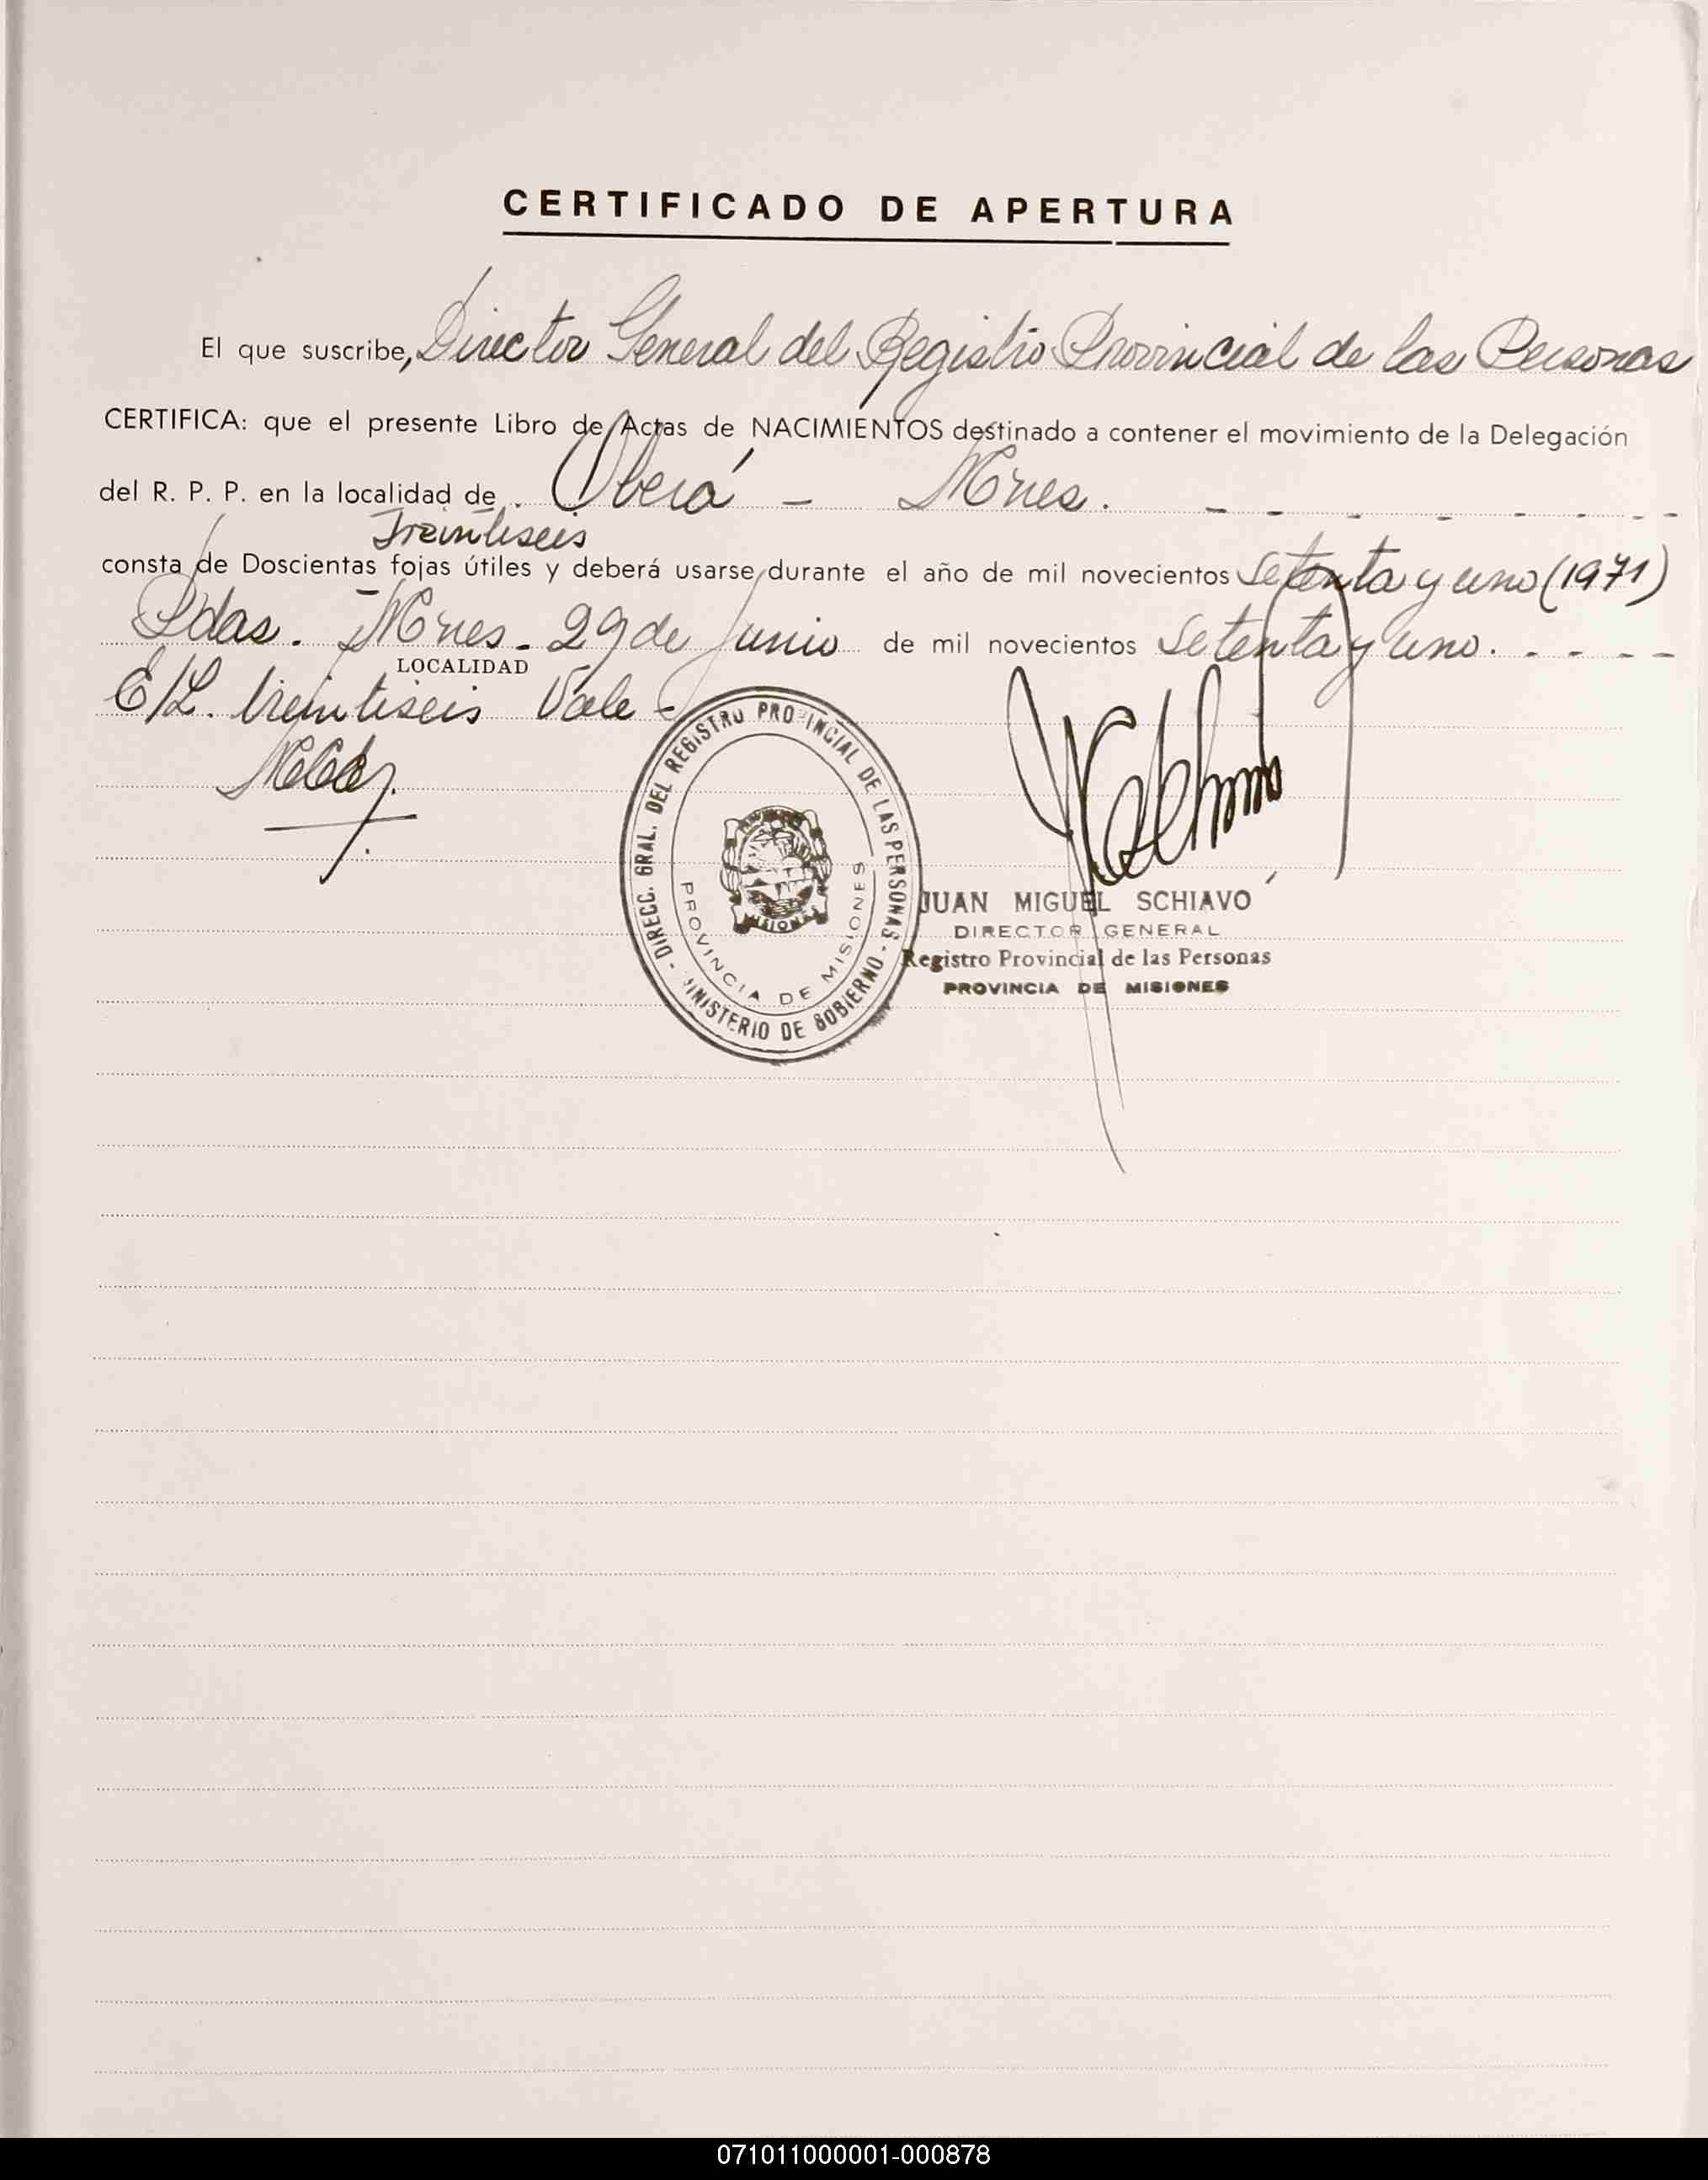 CERTIFICADO DE APERTURA
El que suscribe, Director General del Registro Provincial de las Personas
CERTIFICA: que el presente Libro de Actas de NACIMIENTOS destinado a contener el movimiento de la Delegación
del R. P. P. en la localidad de Oberá - Mnes. - - - - - - - -
Treintiseis
consta de Doscientas fojas útiles y deberá usarse durante el año de mil novecientos setenta y uno (1971)
Pdas. - Mnes - 29 de Junio de mil novecientos setenta y uno. - - - -
LOCALIDAD
E/L. treintiseis Vale -
DIRECC. GRAL. DEL REGISTRO PROVINCIAL DE LAS PERSONAS - MINISTERIO DE GOBIERNO -
PROVINCIA DE MISIONES
JUAN MIGUEL SCHIAVO
DIRECTOR GENERAL
Registro Provincial de las Personas
PROVINCIA DE MISIONES
071011000001-000878